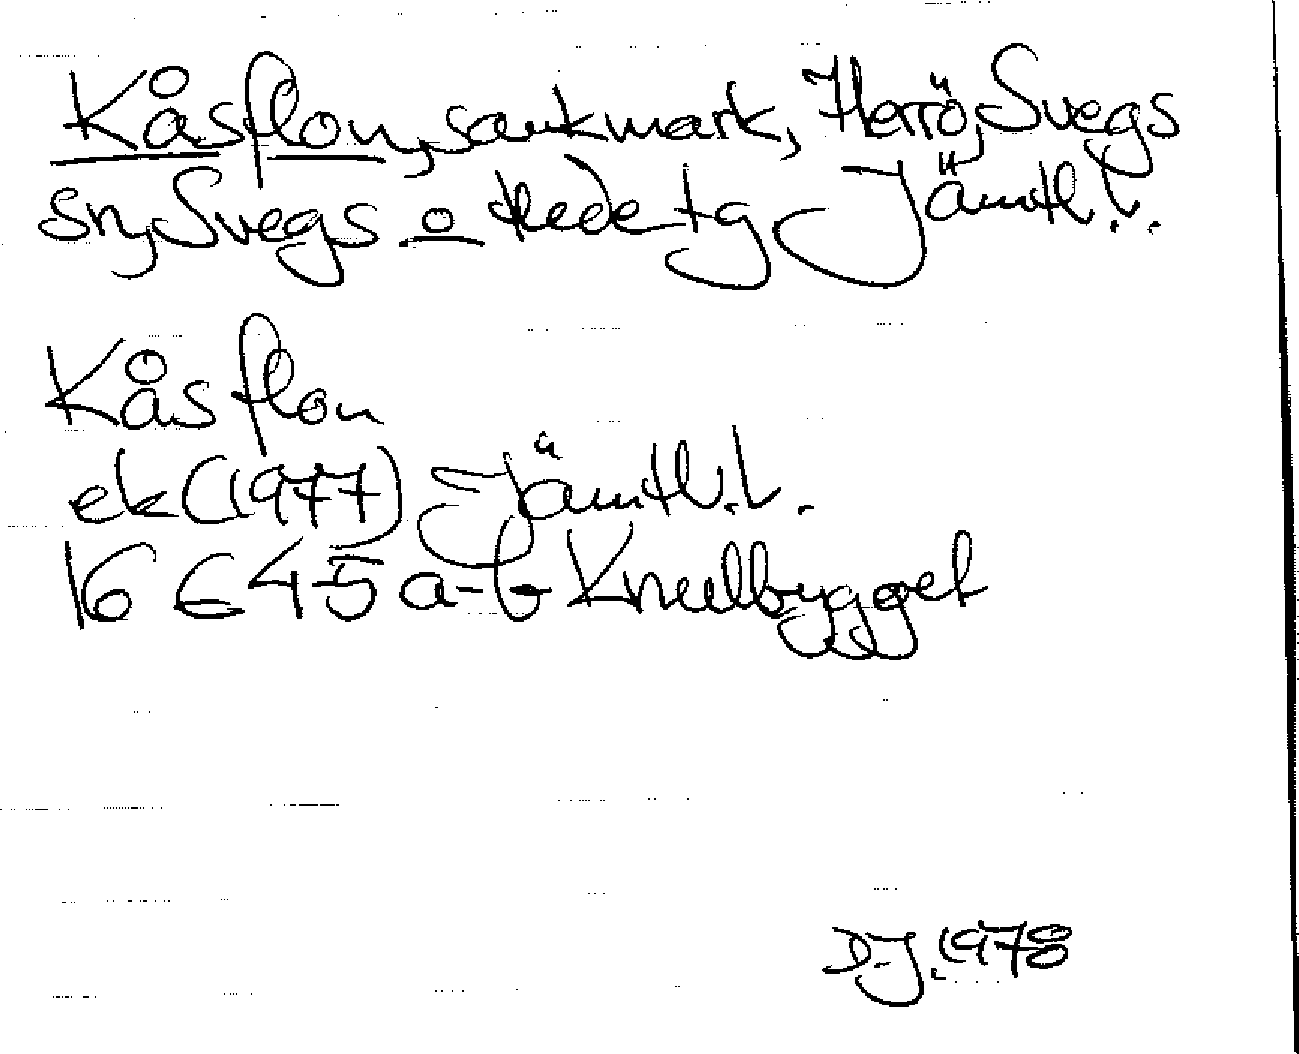 Kåsflon, sankmark, Herrö, Svegs
sn, Svegs o Hede tg Jämtl.l.
Kåsflon
ek (1977) Jämtl.l.
16 E 4-5 a-b Knullbygget
D-J. 1978